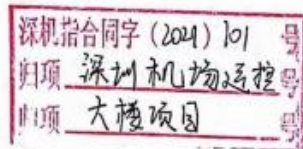 深机指合同字(2021)101号
归项 深圳机场运控号
归项 大楼项目号